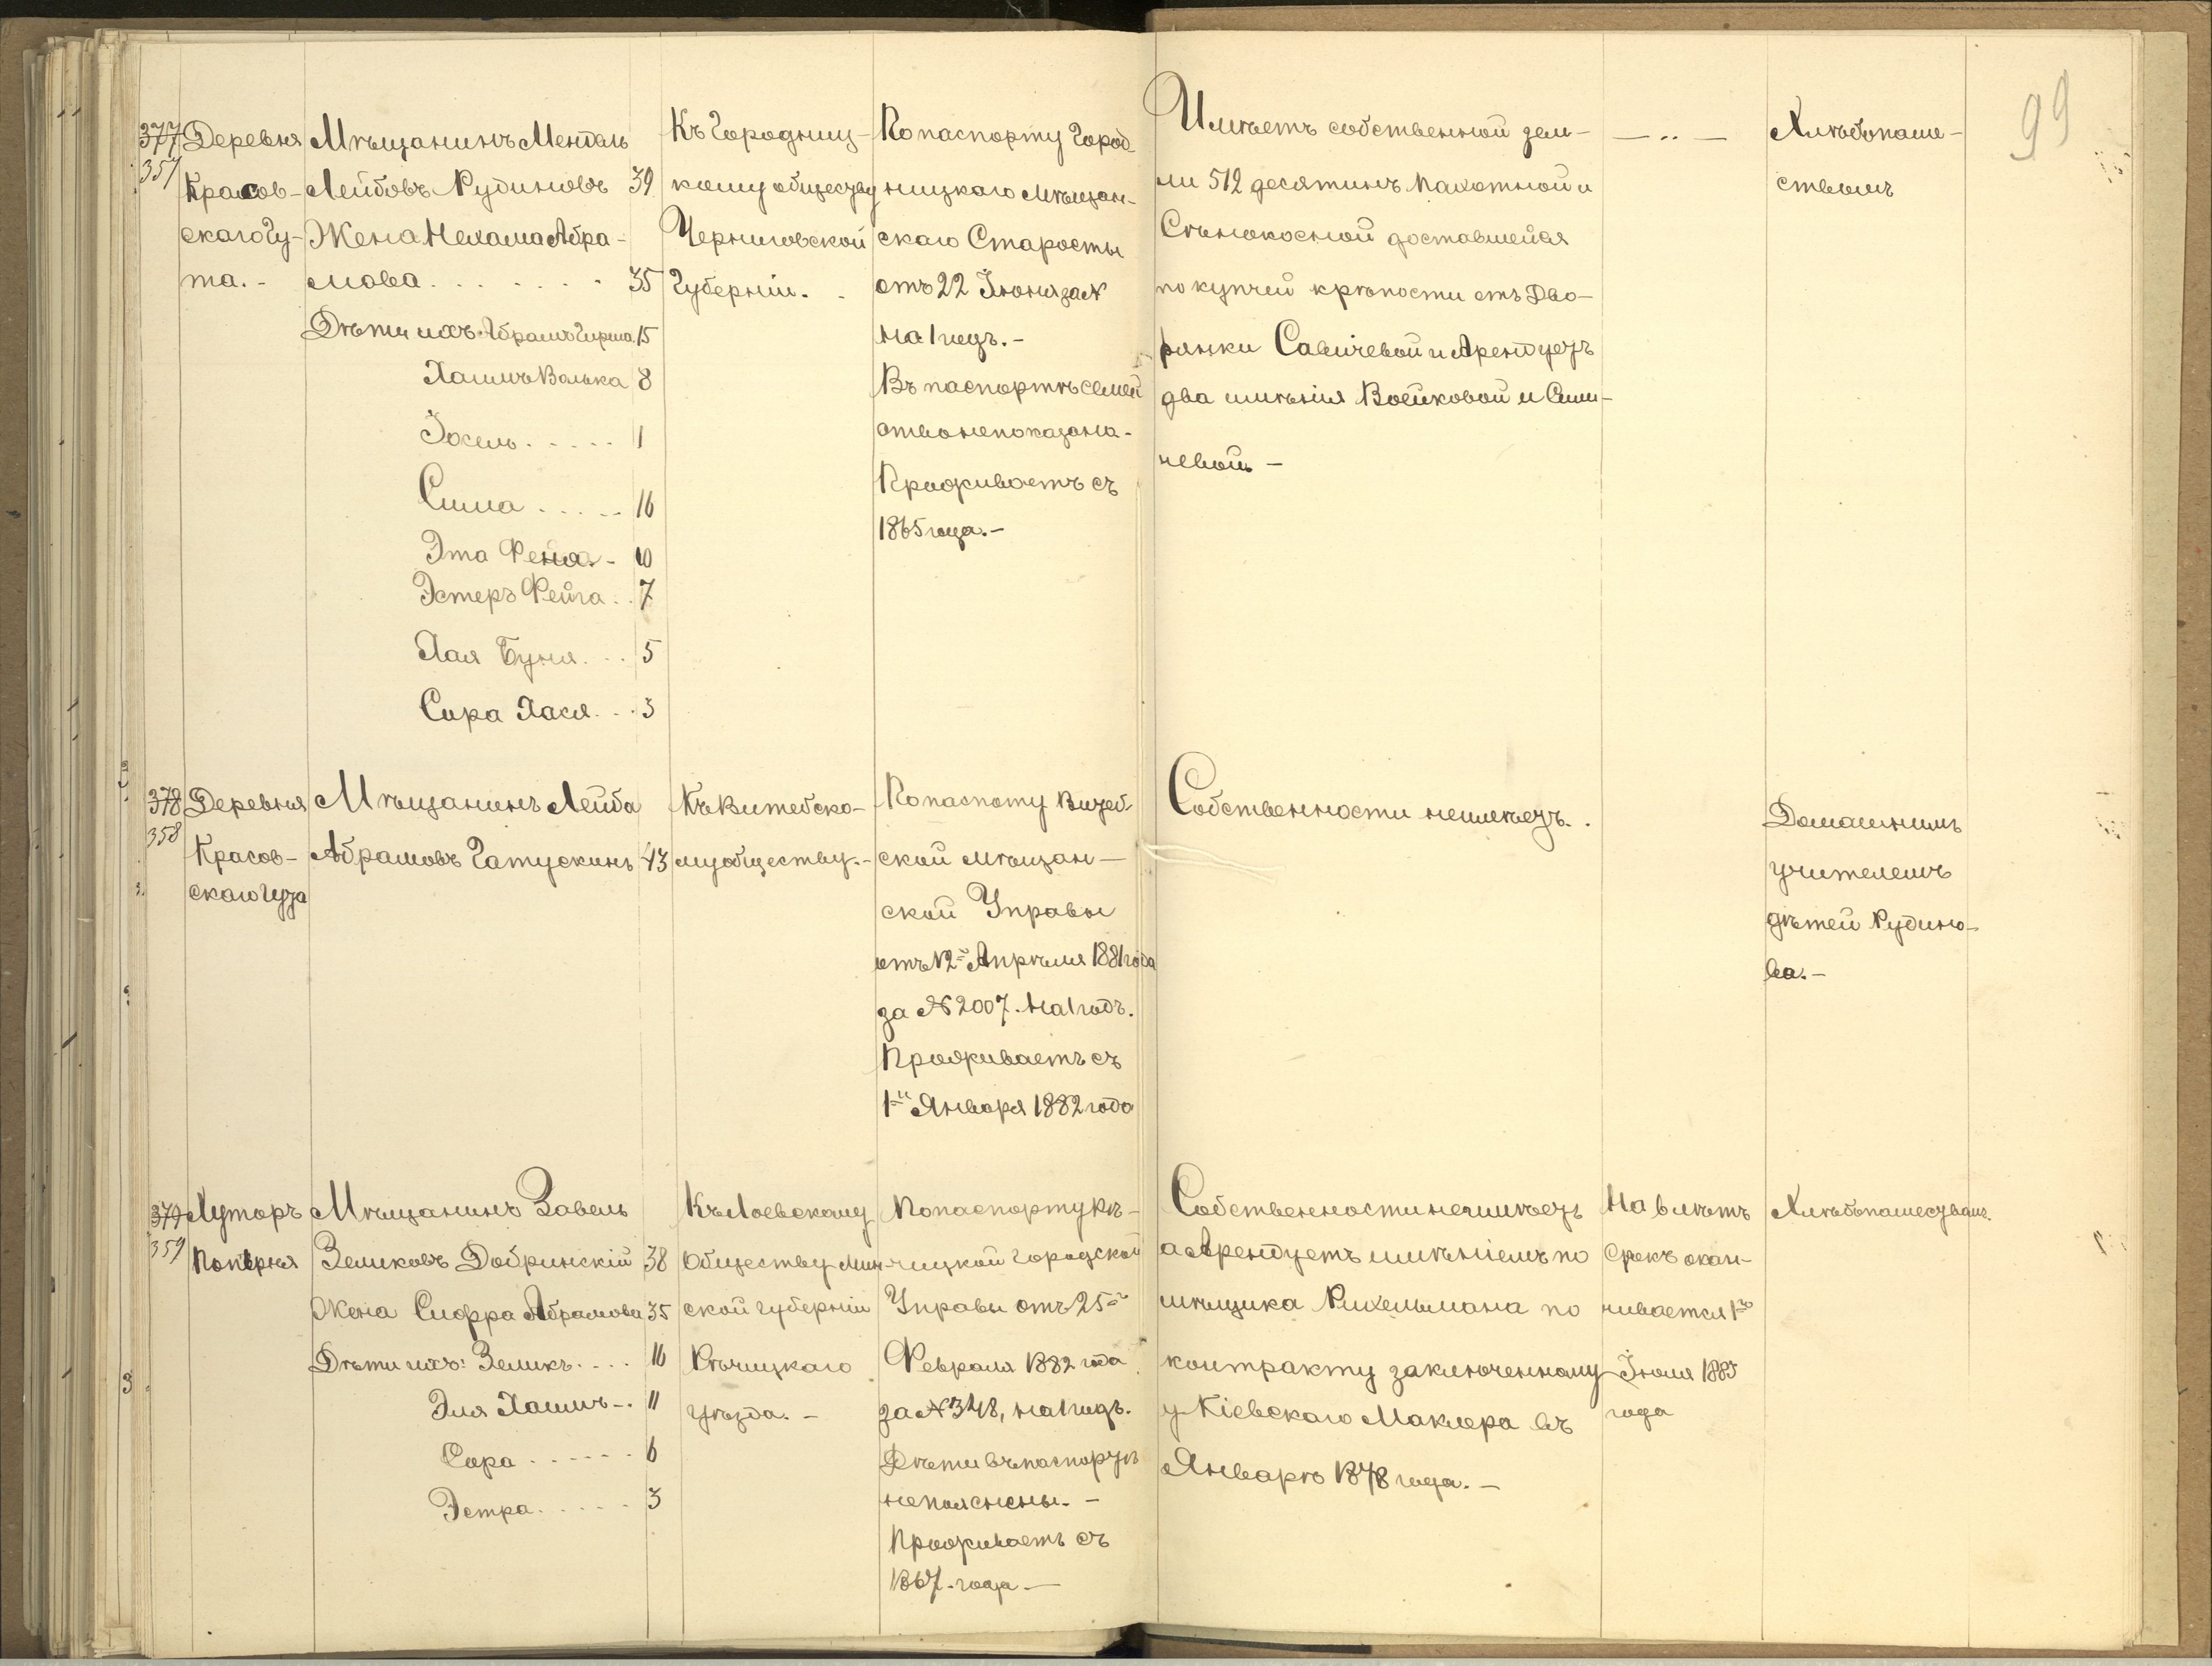 99
377
357
Деревня
Красов-
скаго Гу-
та.-
Мѣщанинъ Мендель
Лейбовъ Рудиновъ 39
Жена Нехама Абра-
мова . . . . . . . 35
Дѣти ихъ Абрамъ Гирша 15
Хаимъ Волька 8
Іосель . . . . . 1
Сима . . . . . 16
Эта Фейга . - 10
Эстеръ Фейга . . 7
Хая Буня . . . 5
Сара Хася . . . 3
Къ Городниц-
кому обществу
Черниговской
Губерніи. .
По паспорту Город-
ницкаго мѣщан-
скаго Старосты
отъ 22 Іюня за №
на 1 годъ.-
Въ паспортѣ семей
ство не показана.
Проживаетъ съ
1865 года.-
Имѣетъ собственной зем-
ли 512 десятинъ пахотной и
Сѣнокосной доставшейся
по купчей крѣпости отъ Дво-
рянки Савичевой и Арендуетъ
два имѣнія Воейковой и Сини-
невой -
— .. —
Хлѣбопаше-
ствомъ
378
358
Деревня
Красов-
скаго Гута
Мѣщанинъ Лейба
Абрамовъ Гатускинъ 43
Къ Витебско-
му обществу.-
По паспоту Витеб
ской мѣщан-
ской Управы
отъ 12го Апрѣля 1881 года
за № 2007. на 1 годъ.
Проживаетъ съ
1го Января 1882 года
Собственности неимѣетъ. .
Домашнимъ
учителемъ
дѣтей Рудино-
ва.-
379
359
Хуторъ
Попѣрня
Мѣщанинъ Завель
Зеликовъ Добринскій 38
Жена Сифра Абрамова 35
Дѣти ихъ: Зеликъ . . . . 16
Эля Хаимъ - . 11
Сора . . . . . . 6
Эстра . . . . . 3
Къ Лоевскому
Обществу Мин
ской губерніи
Рѣчицкаго
уѣзда. -
По паспорту Рѣ-
чицкой городской
Управы отъ 25го
Февраля 1882 года
за № 348, на 1 годъ.
Дѣти въ паспортѣ
не пояснены. -
Проживаетъ съ
1867. года -
Собственности неимѣетъ
а Арендуетъ имѣніемъ по
мѣщика Рихельмана по
контракту заключенному
у Кіевскаго Маклера въ
Январѣ 1878 года. -
На 6 лѣтъ
Срокъ окан-
чивается 1го
Іюля 1885
года
Хлѣбопашествомъ.